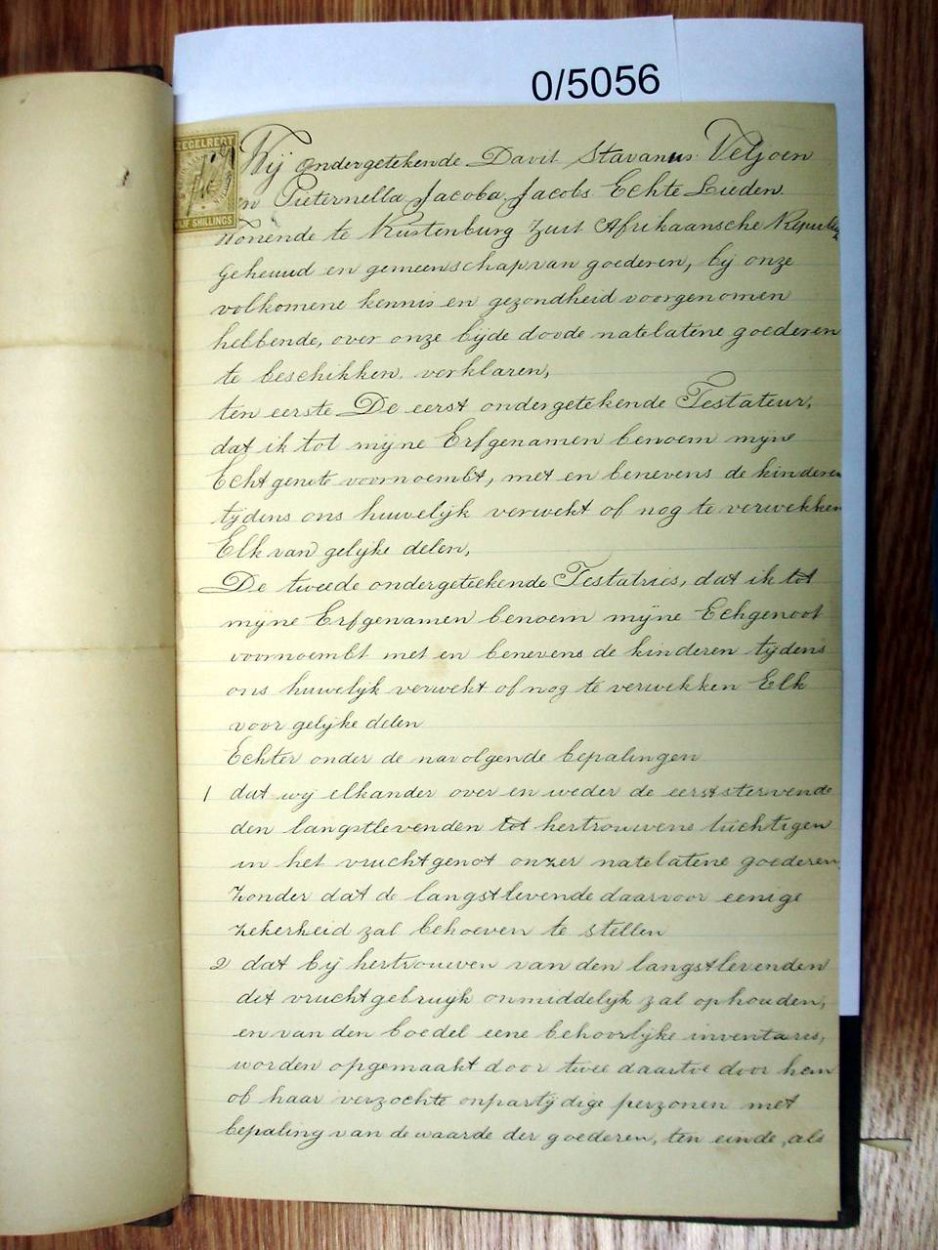 0/5056
ZEGELRECHT
VIJF SHILLINGS
Wij ondergetekende Davit Stavanus Veljoen
en Pieternella Jacoba Jacobs Echte Lieden
Wonende te Rustenburg Zuit Afrikaansche Republiek
Gehuud en gemeenschap van goederen, bij onze
volkomene kennis en gezondheid voorgenomen
hebbende, over onze bijde doode natelatene goederen
te beschikken, verklaren,
ten eerste De eerst ondergetekende Testateur,
dat ik tot mijne Erfgenamen benoem mijne
Echtgenote voornoembt, met en benevens de kinderen
tijdens ons huwelijk verwekt of nog te verwekken
Elk van gelijke delen,
De tweede ondergeteekende Testatries, dat ik tot
mijne Erfgenamen benoem mijne Echgenoot
voornoembt met en benevens de kinderen tijdens
ons huwelijk verwekt of nog te verwekken Elk
voor gelijke delen
Echter onder de navolgende bepalingen
1 dat wij elkander over en weder de eerststervende
den langstlevenden tot hertrouwens tuchtigen
in het vruchtgenot onzer natelatene goederen
zonder dat de langstlevende daarvoor eenige
zekerheid zal behoeven te stellen
2 dat bij hertrouwen van den langstlevenden
dit vruchtgebruijk onmiddelijk zal ophouden,
en van den boedel eene behoorlijke inventaris,
worden opgemaakt door twee daartoe door hem
of haar verzochte onpartijdige perzonen met
bepaling van de waarde der goederen, ten einde, als